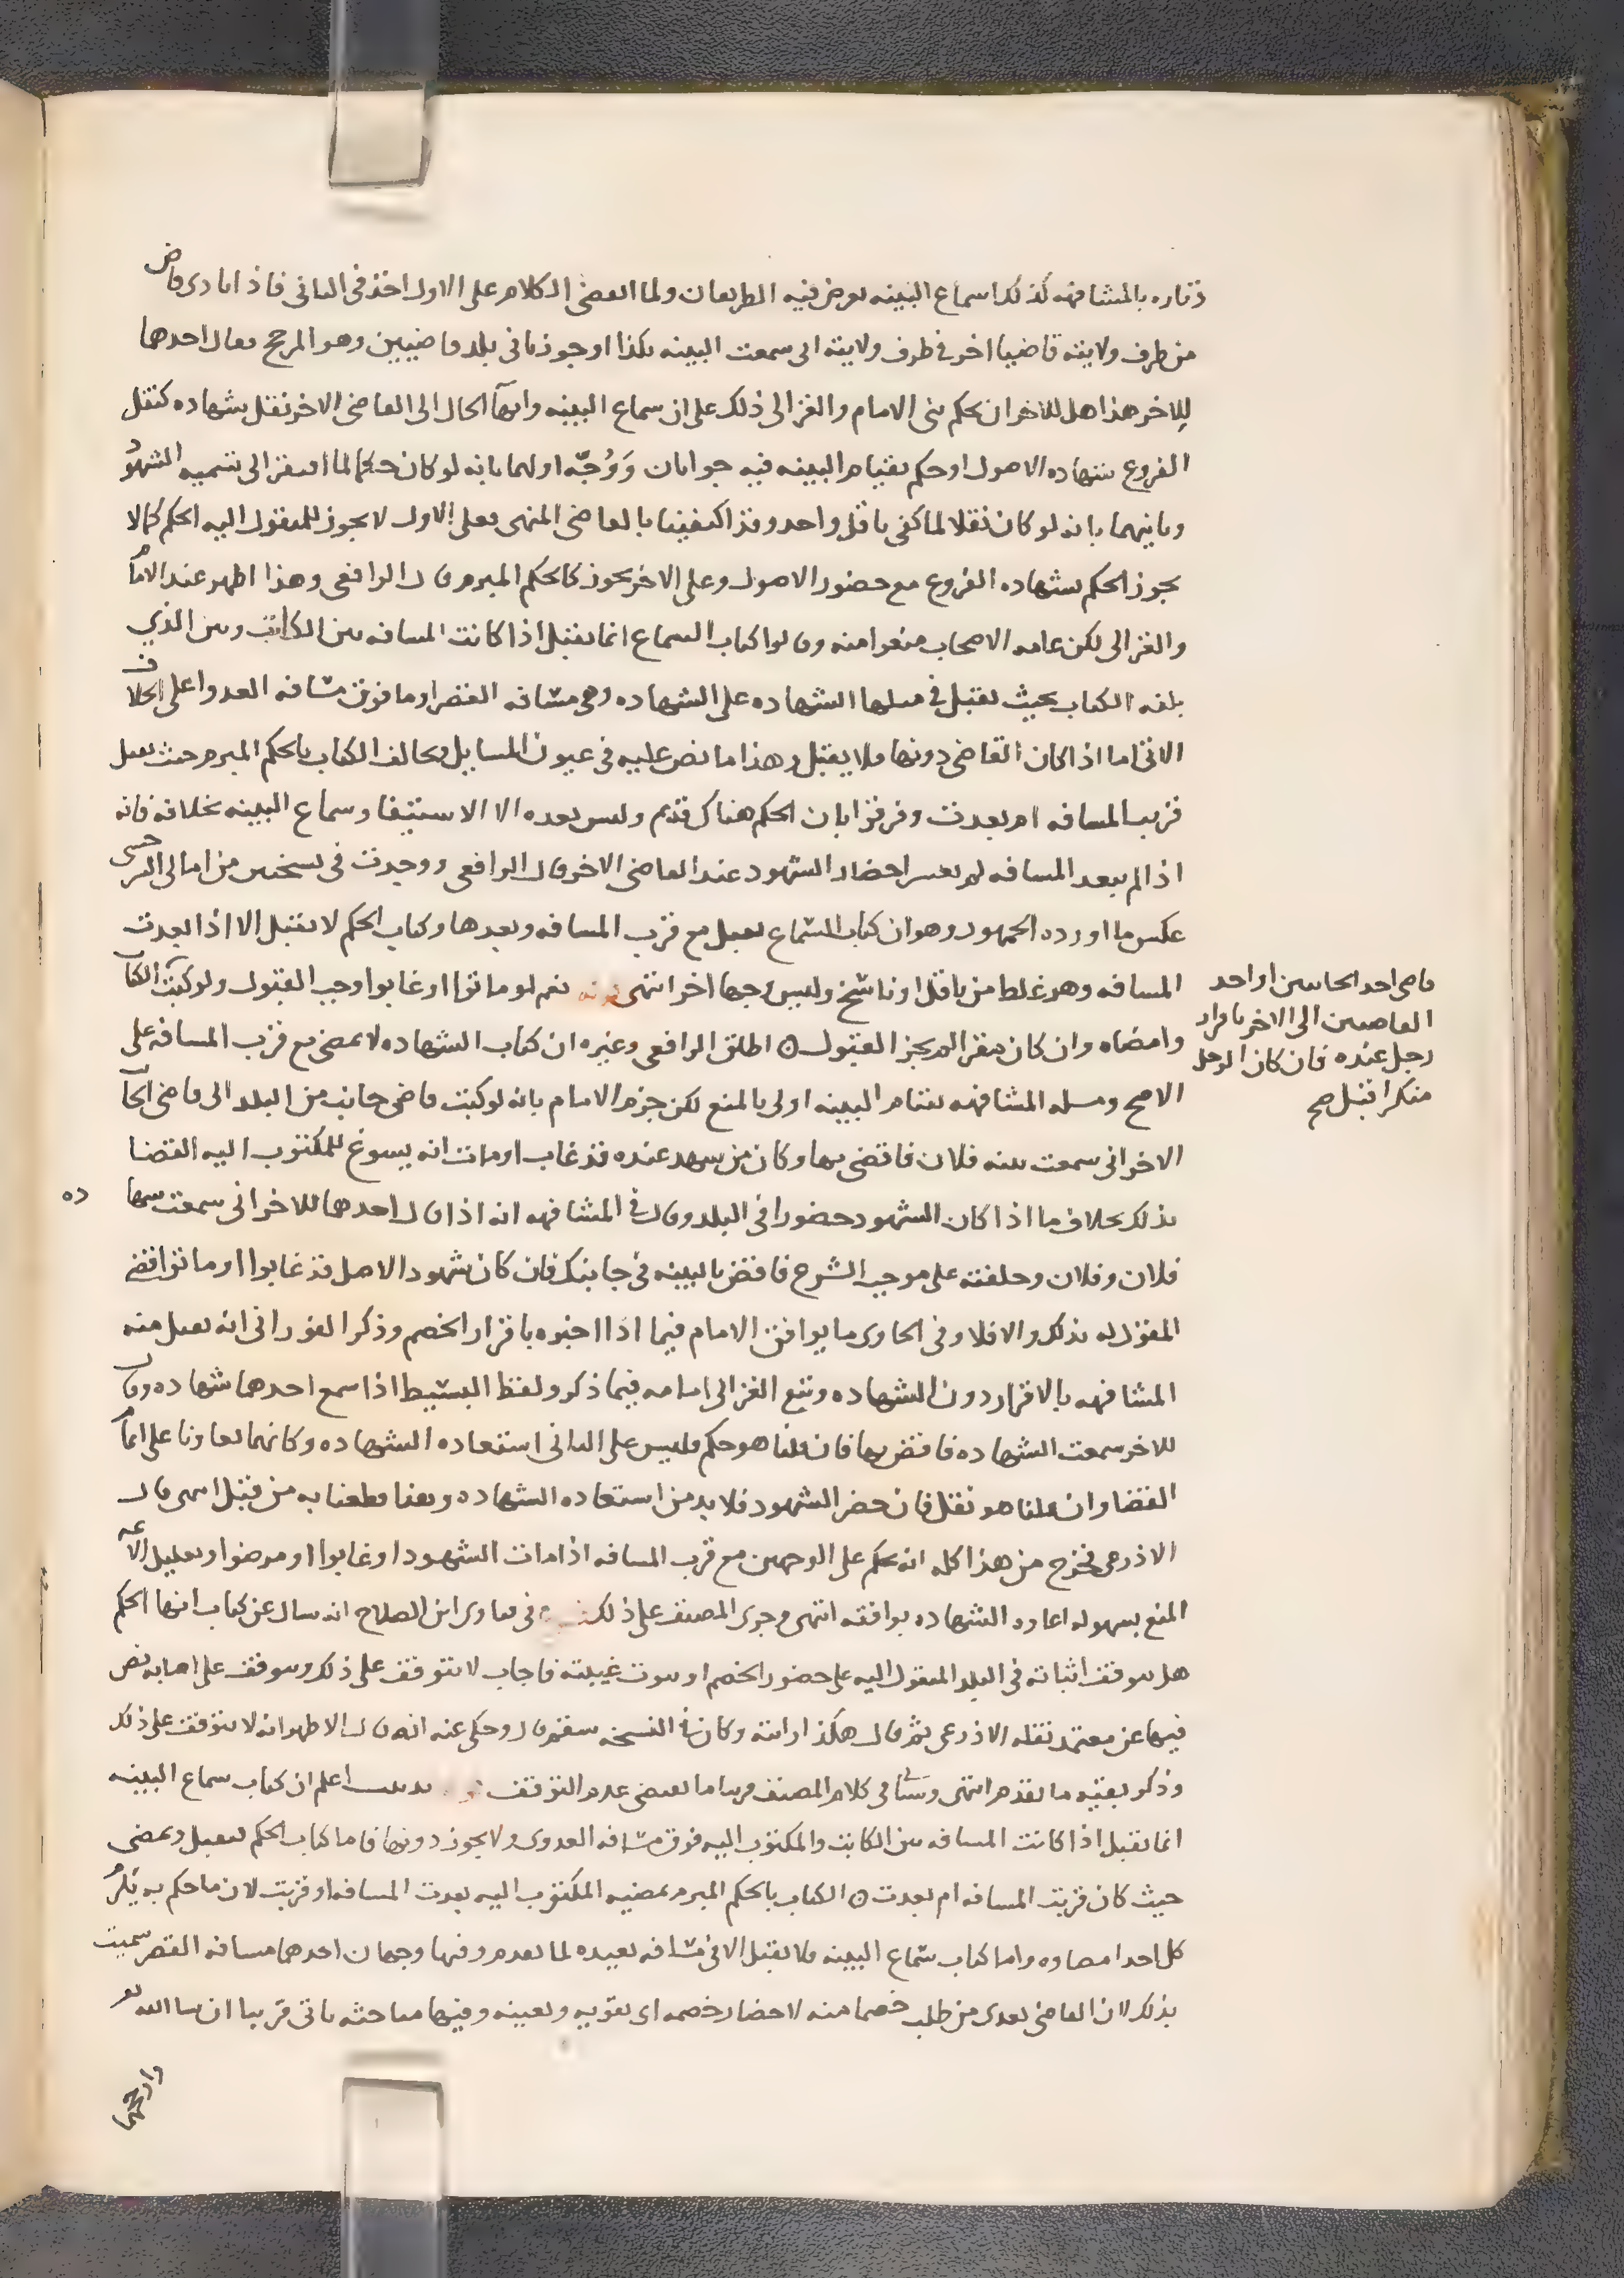 وتاره بالمشافهه كذلك اسماع البينه يعرض فيه الطريقان ولما انقضى الكلام على الاول اخذ في الثاني فاذا نادى قاض
من طرف ولايته قاضيا اخر في طرف ولايته اني سمعت البينه بكذا او جوزنا في بلد قاضيين وهو المرجح فقال احدهما
للاخر هذا هل للاخر ان يحكم بنى الامام والغزالي ذلك على ان سماع البينه وانهآ الحال الى القاضي الاخر نقل شهاده كنقل
الفروع شهاده الاصول او حكم بقيام البينه فيه جوابان وَوُجّه اولهما بانه لو كان حكما لما افتقر الى تسميه الشهود
وثانيهما بانه لو كان نقلا لما كفى ناقل واحد وقد اكتفينا بالقاضي المنهي فعلى الاول لا يجوز للمنقول اليه الحكم كما لا
يجوز الحكم بشهاده الفروع مع حضور الاصول وعلى الاخر يجوز كالحكم المبرم قال الرافعي وهذا اظهر عند الامام
والغزالي لكن عامه الاصحاب منعوا منه وقالوا كتاب السماع انما يقبل اذا كانت المسافه بين الكاتب وبين الذي
بلغه الكتاب بحيث يقبل في مثلها الشهاده على الشهاده وهي مسافه القصر او ما فوق مسافه العدوا على الخلاف
الاتي اما اذا كان القاضي دونها فلا يقبل وهذا ما نص عليه في عيون المسايل ويخالف الكتاب بالحكم المبرم حيث يقبل
قربت المسافه ام بعدت وفرقوا بان الحكم هناك قد تم وليس بعده الا الاستيفا وسماع البينه بخلافه فانه
اذا لم يبعد المسافه لم يعسر احضار الشهود عند القاضي الاخر قال الرافعي ووجدت في نسختين من امالي السرخسي
عكس ما اورده الجمهور وهو ان كتاب السماع يقبل مع قرب المسافه وبعدها وكتاب الحكم لا يقبل الا اذا بعدت
المسافه وهو غلط من ناقل او ناسخ وليس وجها اخر انتهى نعم لو ماتوا او غابوا وجب القبول ولو كتب الكتاب
وامضاه وان كان مقرا لم يجز القبول ۞ اطلق الرافعي وغيره ان كتاب الشهاده لا يمضى مع قرب المسافه على
الاصح ومسله المشافهه بقيام البينه اولى بالمنع لكن جزم الامام بانه لو كتب قاضي جانب من البلد الى قاضي الجانب
الاخر اني سمعت بينه فلان فاقضى بها وكان من شهد عنده قد غاب او مات انه يسوغ للمكتوب اليه القضا
بذلك بخلاف ما اذا كان الشهود حضورا في البلد وقال في المشافهه انه اذا قال احدهما للاخر اني سمعت شهاده
فلان وفلان وحلفته على موجب الشرح فاقض بالبينه في جانبك فان كان شهود الاصل قد غابوا او ماتوا قضى
المقول له بذلك والا فلا وفي الحاوى ما يوافق الامام فيما اذا اخبره باقرار الخصم وذكر الفوراني انه يقبل منه
المشافهه بالاقرار دون الشهاده وتبع الغزالي امامه فيما ذكر ولفظ البسيط اذا سمع احدهما شهاده وقال
للاخر سمعت الشهاده فاقض بها فان قلنا هو حكم فليس على الثاني استعاده الشهاده وكانهما تعاونا على اتمام
القضا وان قلنا هو نقل فان حضر الشهود فلا بد من استعاده الشهاده وبهذا قطعنا به من قبل انتهى قال
الاذرعي فخرج من هذا كله انه يحكم على الوجهين مع قرب المسافه اذا مات الشهود او غابوا او مرضوا وتعليل الايمه
المنع بسهوله اعاده الشهاده يوافقه انتهى وجرى المصنف على ذلك في فتاوى ابن الصلاح انه سال عن كتاب انها الحكم
هل يتوقف اثباته في البلد المنقول اليه على حضور الخصم او ثبوت غيبته فاجاب لا يتوقف على ذلك ويتوقف على اصابه نص
فيها عن معتمد نقله الاذرعي ثم قال هكذا رايته وكان في النسخه سقم قال وحكي عنه انه قال الاظهر انه لا يتوقف على ذلك
وذكر بقيه ما تقدم انتهى وسياتي في كلام المصنف قريبا ما يقتضي عدم التوقف اعلم ان كتاب سماع البينه
انما يقبل اذا كانت المسافه بين الكاتب والمكتوب اليه فوق مسافه العدوى ولا يجوز دونها فاما كتاب الحكم فيقبل ويمضى
حيث كان قربت المسافه ام بعدت ۞ الكتاب بالحكم المبرم يمضيه المكتوب اليه بعدت المسافه او قربت لان ما حكم به يلزم
كل احد امضاوه واما كتاب سماع البينه فلا يقبل الا في مسافه بعيده لما تقدم وفيها وجهان احدهما مسافه القصر سميت
بذلك لان القاضي يعدى من طلب خصما منه لاحضار خصمه اي يقويه ويعينه وفيها مباحثه ياتي قريبا ان شا الله تعـ
وارجحهما
قاضي احد الجانبين او احد
القاضيين الى الاخر باقرار
رجل عنده فان كان الرجل
منكرا قبل صح